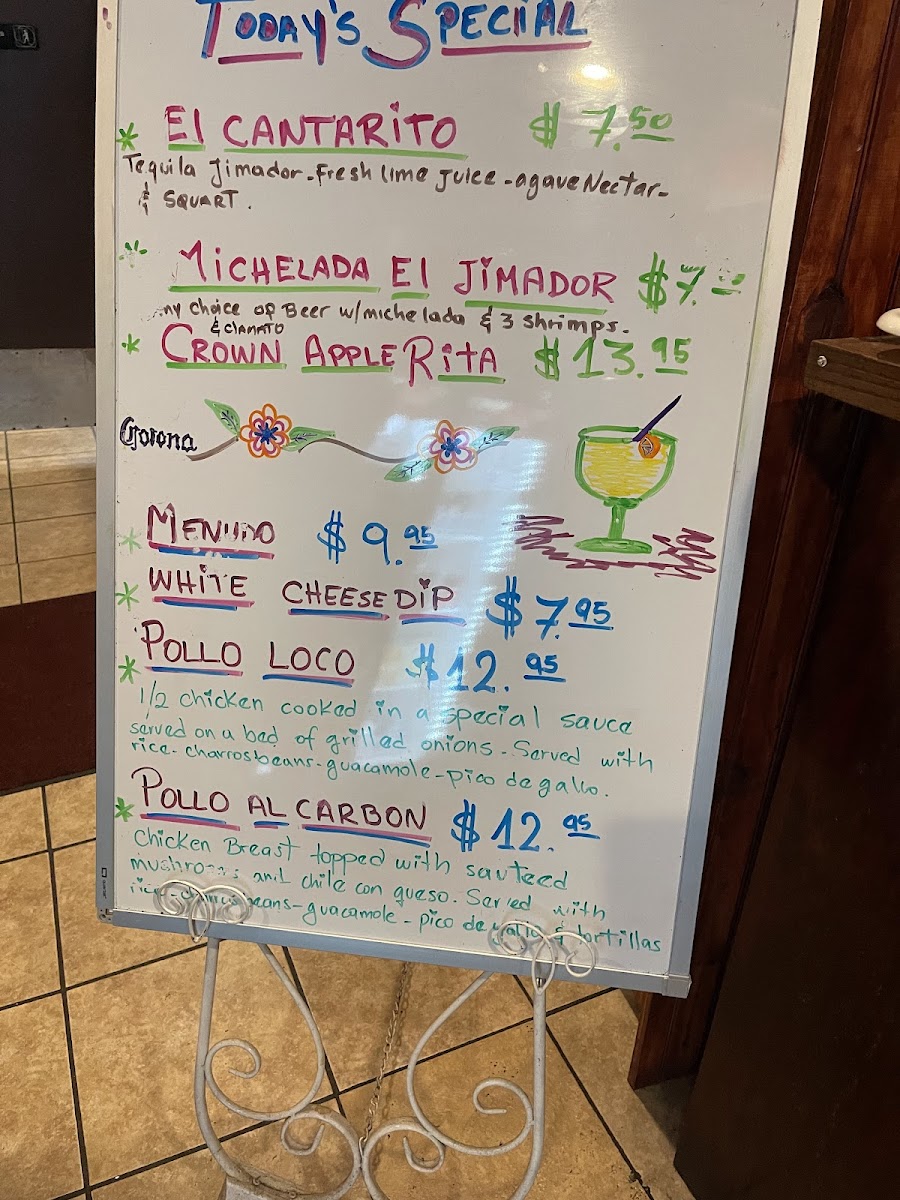 TODAY'S SPECIIAL
* El CANTARITO $ 7.50
Tequila Jimador - Fresh lime Juice - agave Nectar -
& SQUART.
* MICHELADA El JIMADOR $7.
ny choice of Beer w/michelada & 3 shrimps.
& CLAMATO
* CROWN APPLE RITA $13.95
Corona
* MENUDO $ 9.95
* WHITE CHEESE DIP $7.95
* POLLO LOCO $12.95
1/2 chicken cooked in a special sauce
served on a bed of grilled onions - Served with
rice - charros beans - guacamole - pico de gallo.
* POLLO AL CARBON $12.95
Chicken Breast topped with sauteed
mushrooms and chile con queso. Served with
rice - charros beans - guacamole - pico de gallo & tortillas